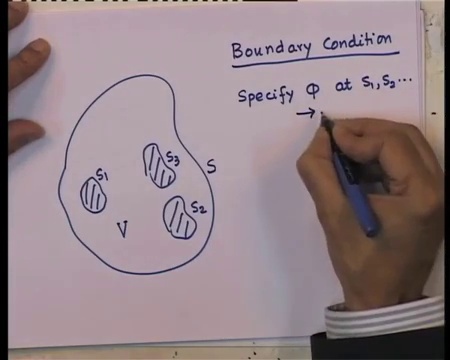 Boundary Condition
Specify Φ at S1, S2...
→
S3
S
S1
S2
V